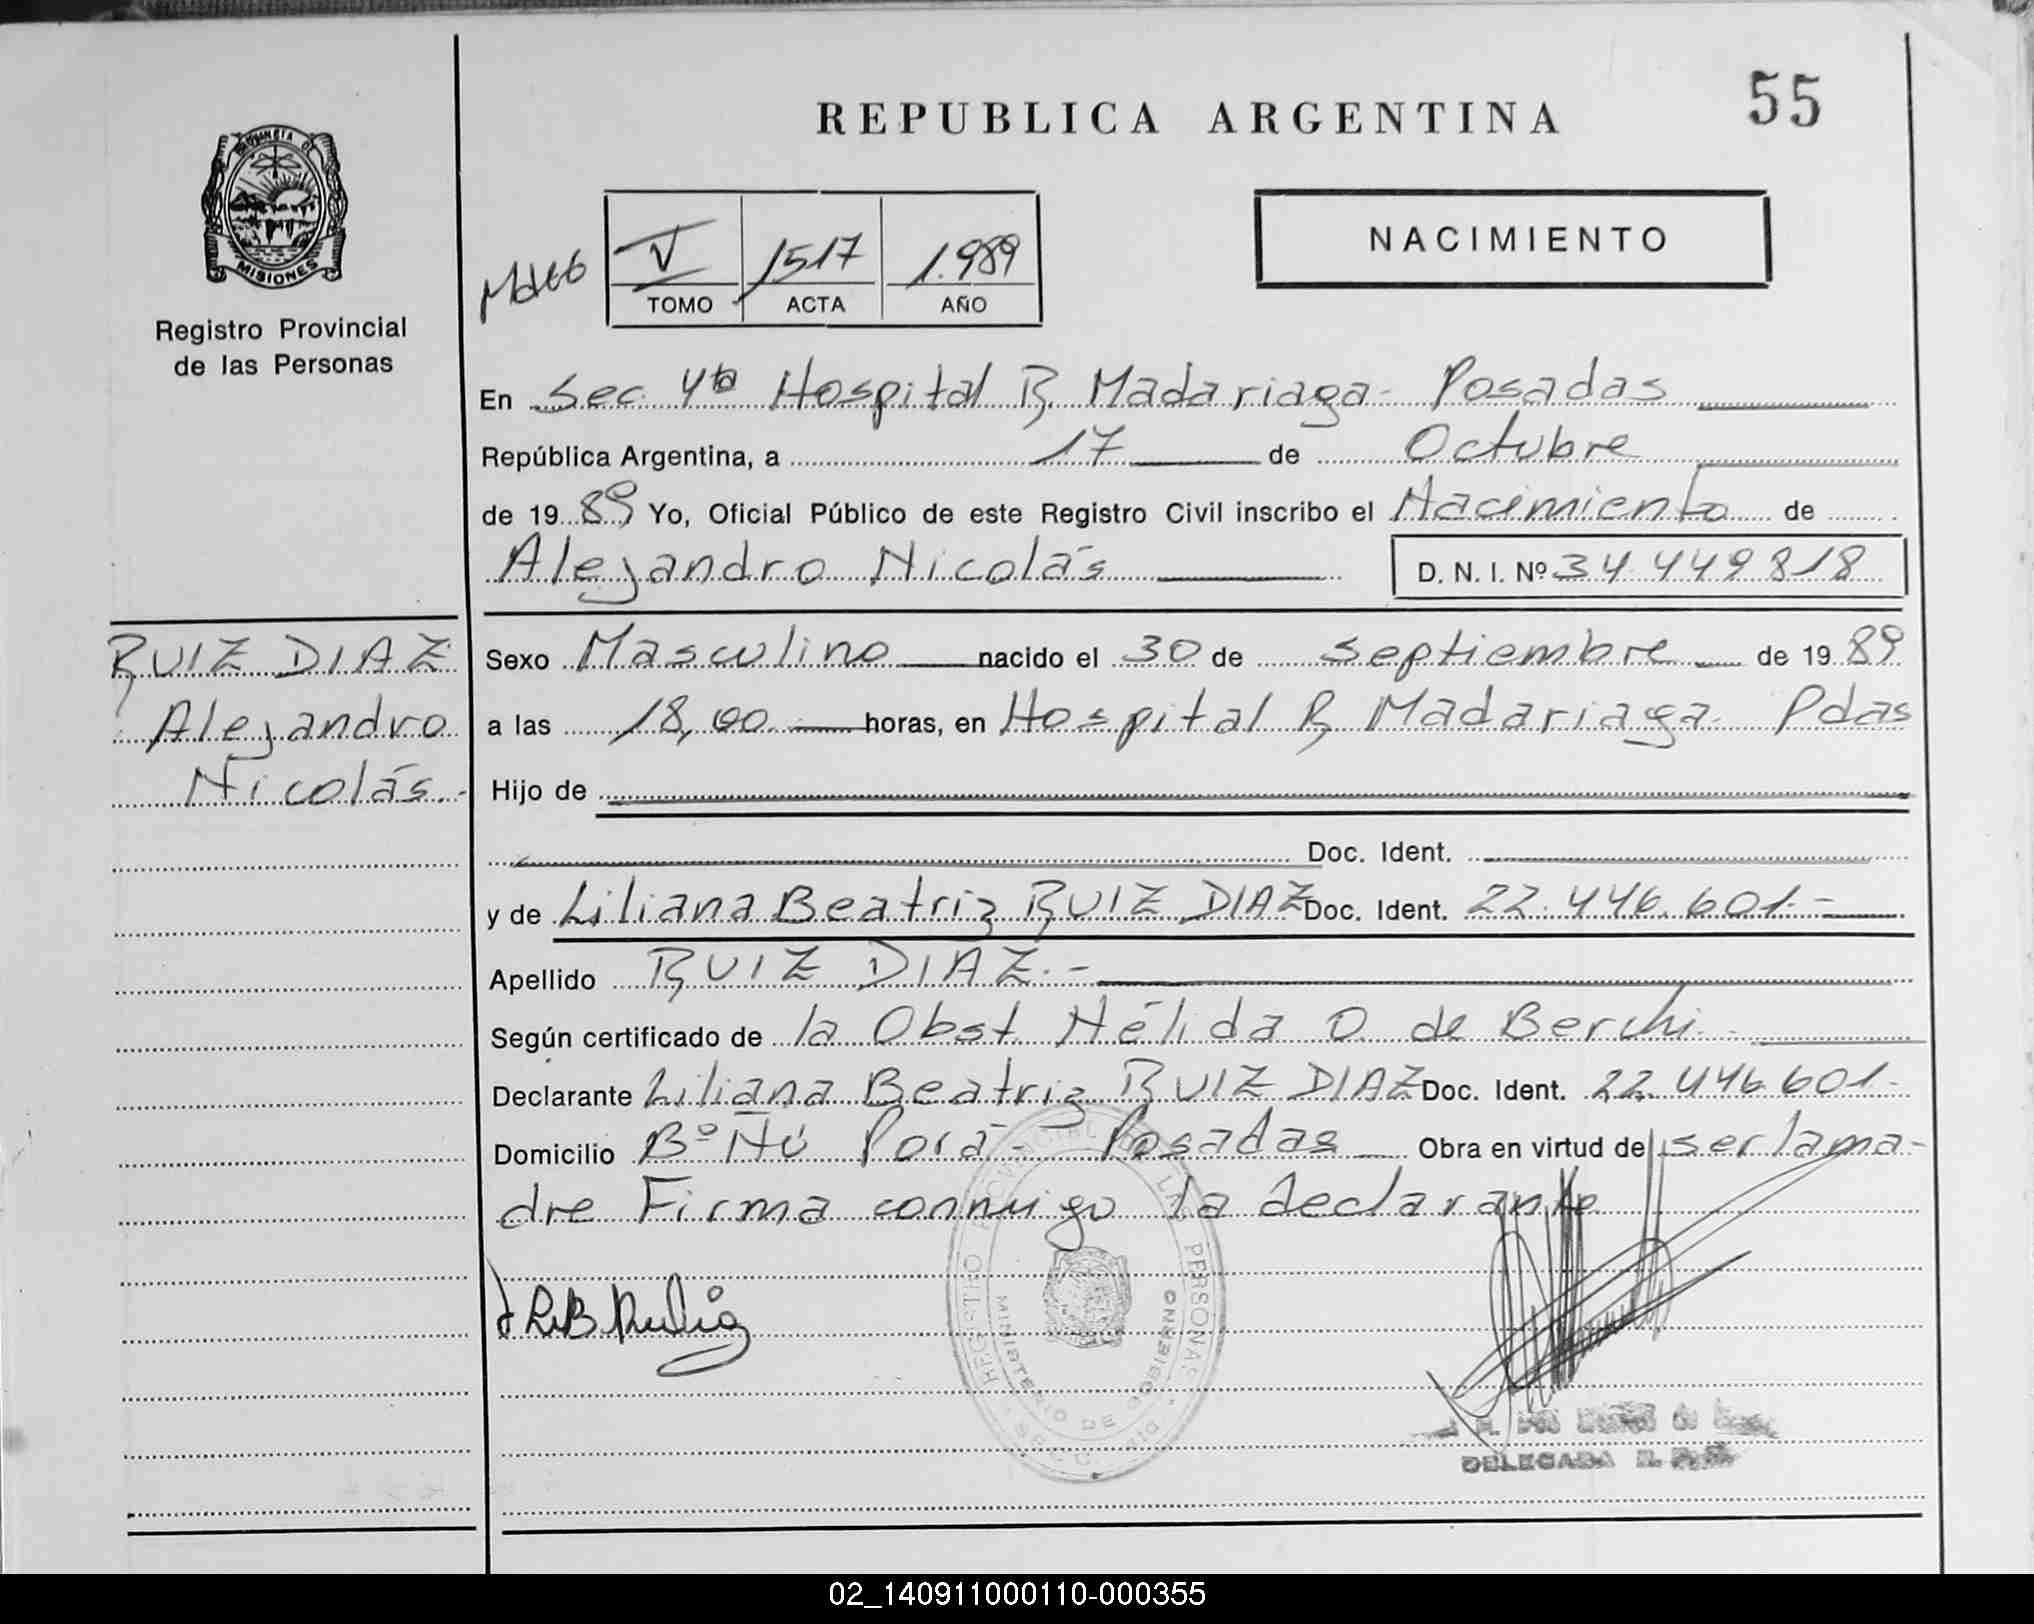 REPUBLICA ARGENTINA
55
PROVINCIA D
MISIONES
Registro Provincial
de las Personas
NACIMIENTO
V 1517 1.989
TOMO ACTA AÑO
En Sec. 4ta Hospital R. Madariaga - Posadas
República Argentina, a 17 de Octubre
de 19 89 Yo, Oficial Público de este Registro Civil inscribo el Nacimiento de
Alejandro Nicolás D. N. I. Nº 34 449 818
RUIZ DIAZ
Alejandro
Nicolás.-
Sexo Masculino nacido el 30 de Septiembre de 19 89
a las 18,00 horas, en Hospital R. Madariaga - Pdas
Hijo de
Doc. Ident.
y de Liliana Beatriz RUIZ DIAZ Doc. Ident. 22.446.601.-
Apellido RUIZ DIAZ.-
Según certificado de la Obst. Hélida O. de Berchi.-
Declarante Liliana Beatriz RUIZ DIAZ Doc. Ident. 22.446.601.-
Domicilio Bº Ñú Porá - Posadas Obra en virtud de ser la ma-
dre Firma conmigo la declarante
REGISTRO PROVINCIAL DE LAS PERSONAS
MINISTERIO DE GOBIERNO
DELEGADA R.
02_140911000110-000355